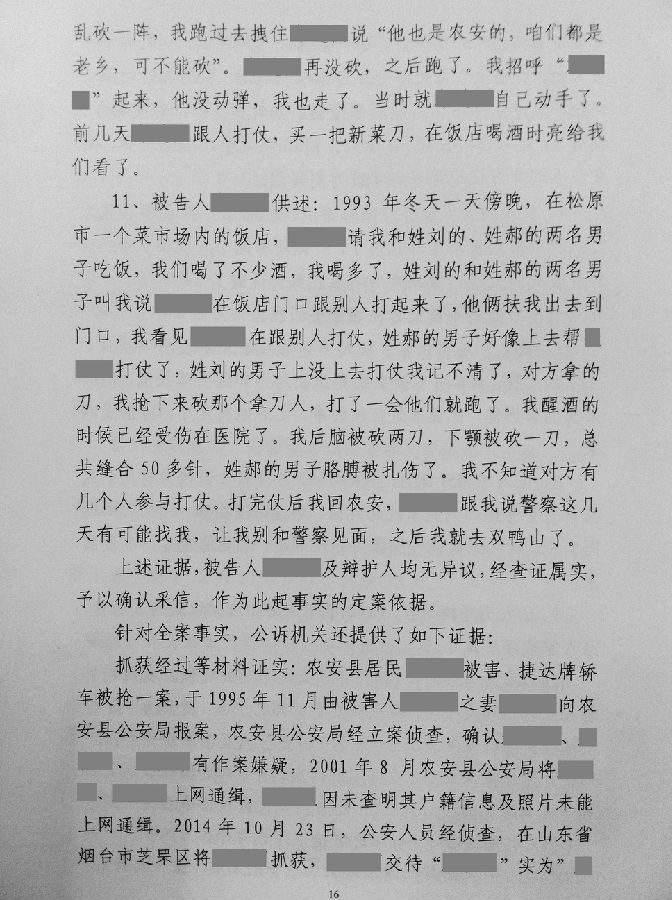 乱砍一阵，我跑过去拽住 说“他也是农安的，咱们都是
老乡，可不能砍”。 再没砍，之后跑了。我招呼“
”起来，他没动弹，我也走了。当时就 自己动手了。
前几天 跟人打仗，买一把新菜刀，在饭店喝酒时亮给我
们看了。
11、被告人 供述：1993 年冬天一天傍晚，在松原
市一个菜市场内的饭店， 请我和姓刘的、姓郝的两名男
子吃饭，我们喝了不少酒，我喝多了，姓刘的和姓郝的两名男
子叫我说 在饭店门口跟别人打起来了，他俩扶我出去到
门口，我看见 在跟别人打仗，姓郝的男子好像上去帮
打仗了，姓刘的男子上没上去打仗我记不清了，对方拿的
刀，我抢下来砍那个拿刀人，打了一会他们就跑了。我醒酒的
时候已经受伤在医院了。我后脑被砍两刀，下颚被砍一刀，总
共缝合 50 多针，姓郝的男子胳膊被扎伤了。我不知道对方有
几个人参与打仗。打完仗后我回农安， 跟我说警察这几
天有可能找我，让我别和警察见面，之后我就去双鸭山了。
上述证据，被告人 及辩护人均无异议，经查证属实，
予以确认采信，作为此起事实的定案依据。
针对全案事实，公诉机关还提供了如下证据：
抓获经过等材料证实：农安县居民 被害、捷达牌轿
车被抢一案，于 1995 年 11 月由被害人 之妻 向农
安县公安局报案，农安县公安局经立案侦查，确认 、
、 有作案嫌疑，2001 年 8 月农安县公安局将
、 上网通缉， 因未查明其户籍信息及照片未能
上网通缉。2014 年 10 月 23 日，公安人员经侦查，在山东省
烟台市芝罘区将 抓获， 交待“ ”实为”
16